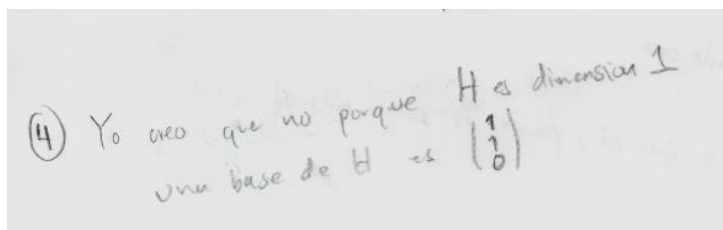 ④ Yo creo que no porque H es dimension 1
una base de H es (1 1 0)